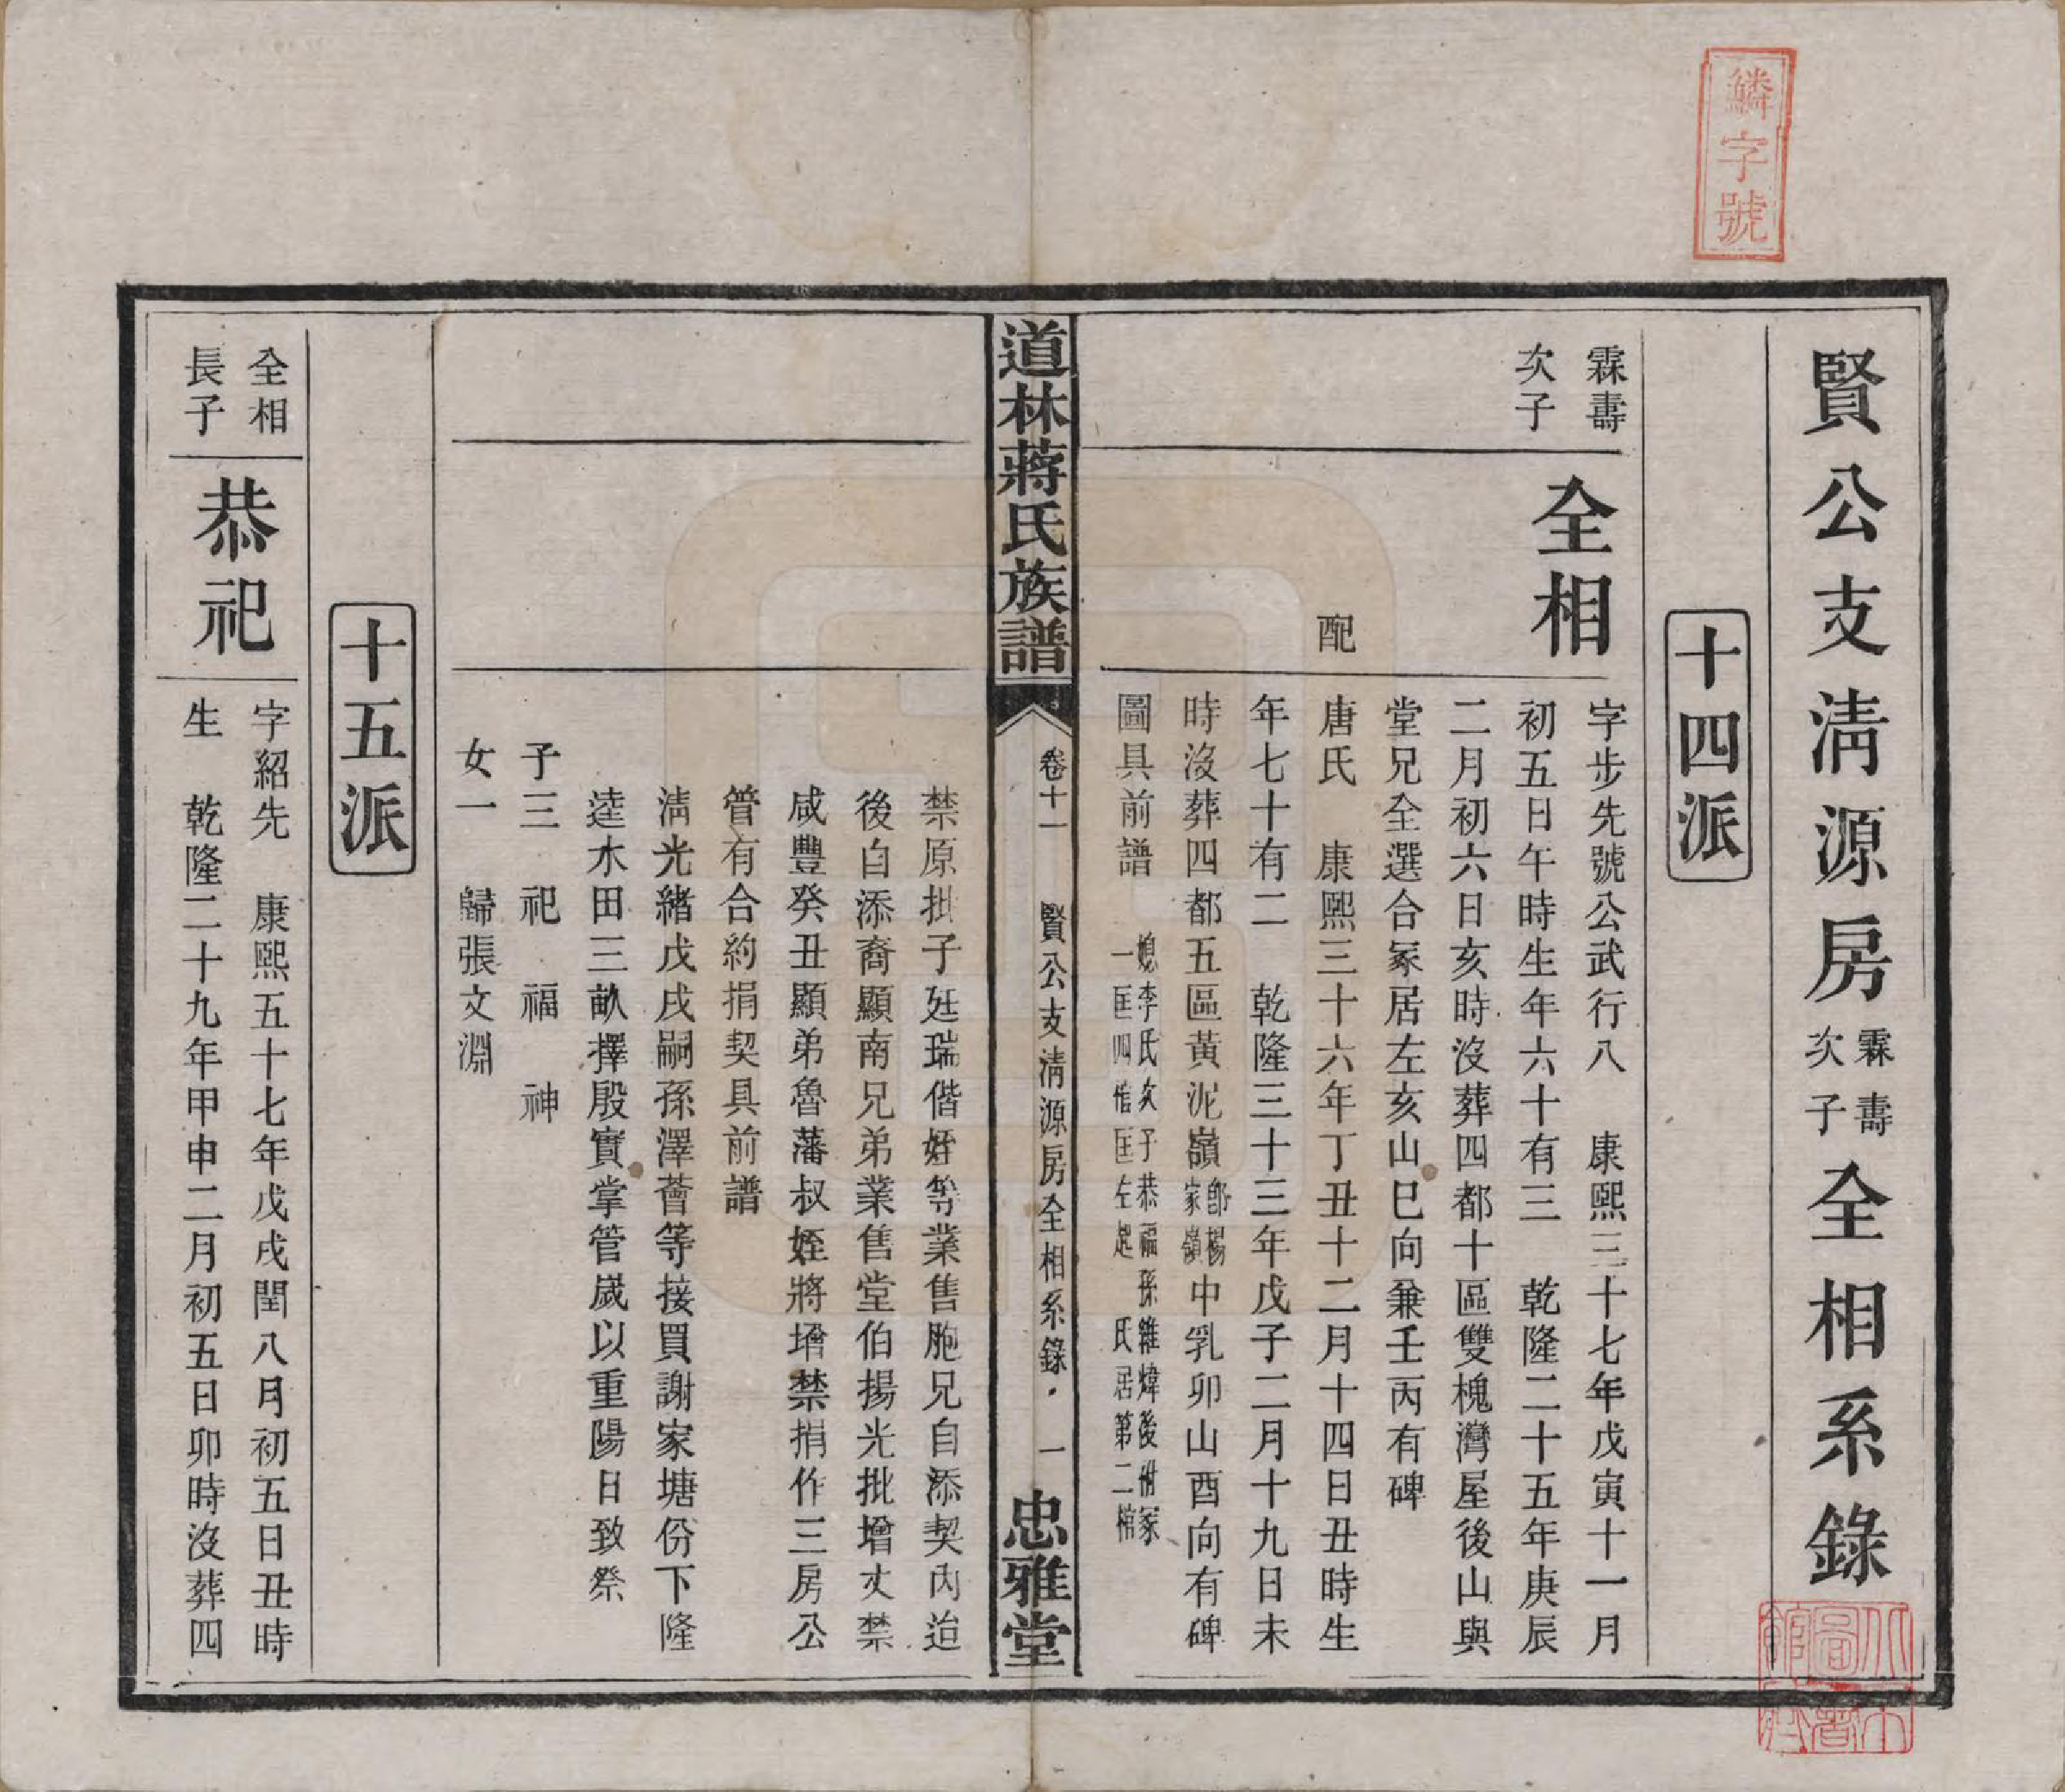 鱗字號
賢公支清源房霖壽次子全相系錄
十四派
霖壽
次子
全相
字步先號公武行八　康熙三十七年戊寅十一月
初五日午時生年六十有三　乾隆二十五年庚辰
二月初六日亥時沒葬四都十區雙槐灣屋後山與
堂兄全選合冢居左亥山巳向兼壬丙有碑
配
唐氏　康熙三十六年丁丑十二月十四日丑時生
年七十有二　乾隆三十三年戊子二月十九日未
時沒葬四都五區黃泥嶺即楊家嶺中乳卯山酉向有碑
圖具前譜　媳李氏次子恭福孫維煒後附冢
一匡四棺匡左起　氏居第二棺
道林蔣氏族譜
卷十一　賢公支清源房全相系錄　一
忠雅堂
禁原批子廷瑞偕姪等業售胞兄自添契內迨
後自添裔顯南兄弟業售堂伯揚光批增丈禁
咸豐癸丑顯弟魯藩叔姪將增禁捐作三房公
管有合約捐契具前譜
清光緒戊戌嗣孫澤薈等接買謝家塘份下隆
逵水田三畝擇殷實掌管嵗以重陽日致祭
子三　祀　福　神
女一　歸張文淵
十五派
全相
長子
恭祀
字紹先　康熙五十七年戊戌閏八月初五日丑時
生　乾隆二十九年甲申二月初五日卯時沒葬四